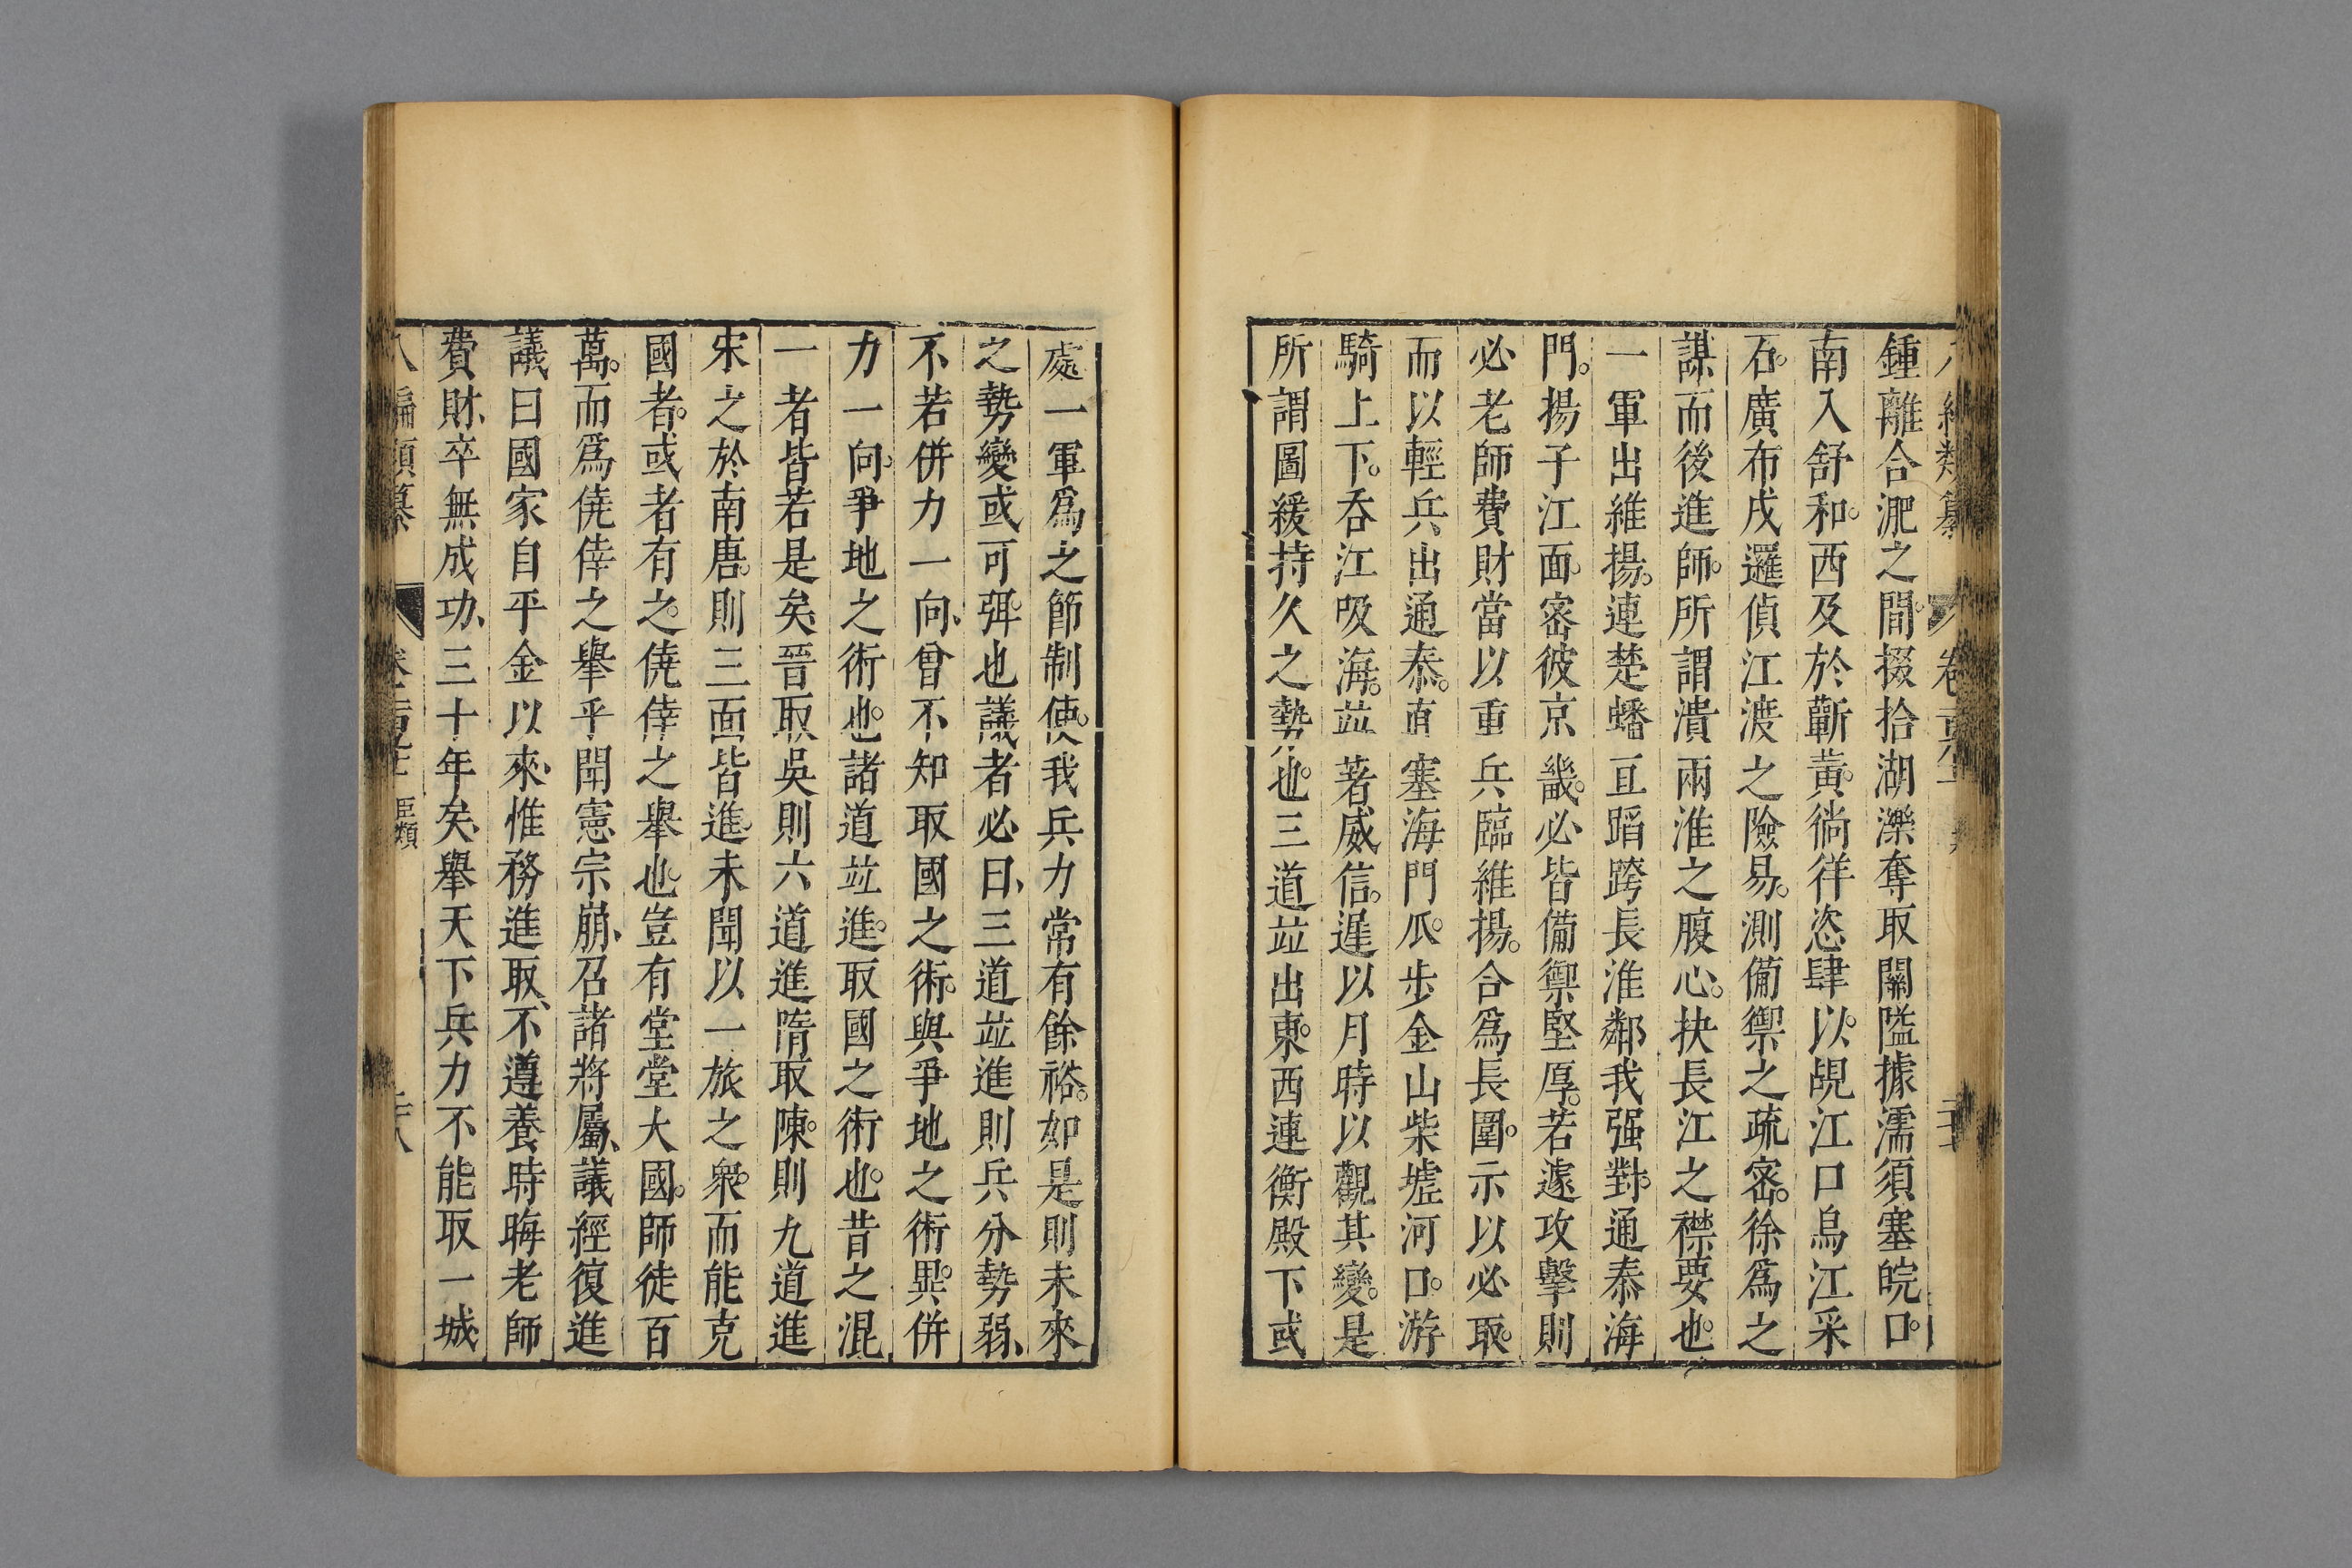 鍾離合淝之間。掇拾湖濼奪取關隘據濡須塞皖口。
南入舒和。西及於蘄黃。徜徉恣肆。以覘江口烏江采
石。廣布戍邏偵江渡之險易。測備禦之疏密。徐爲之
謀而後進師。所謂潰兩淮之腹心。抉長江之襟要也。
一軍出維揚。連楚蟠亘蹈跨長淮鄰我强對。通泰海
門。揚子江面。密彼京畿。必皆備禦堅厚。若遽攻擊則
必老師費財當以重兵臨維揚。合爲長圍。示以必取。
而以輕兵出通泰。直塞海門瓜。步金山柴墟河口。游
騎上下。吞江吸海。並著威信。遲以月時以觀其變。是
所謂圖緩持久之勢也。三道並出東。西連衡殿下或
處一軍爲之節制使。我兵力常有餘裕。如是則未來
之勢變或可弭。也議者必曰、三道並進則兵分勢弱、
不若併力一向、曾不知取國之術。與爭地之術。異。併
力一向、爭地之術也。諸道並進。取國之術也。昔之混
一者皆若是矣晉取吳則六道進隋取陳。則九道進
宋之於南唐。則三面皆進。未聞以一旅之衆。而能克
國者。或者有之。僥倖之舉也。豈有堂堂大國。師徒百
萬。而爲僥倖之舉乎聞憲宗崩、召諸將屬、議經復進
議曰國家自平金以來、惟務進取、不遵養時晦老師
費財、卒無成功、三十年矣、舉天下兵力不能取一城